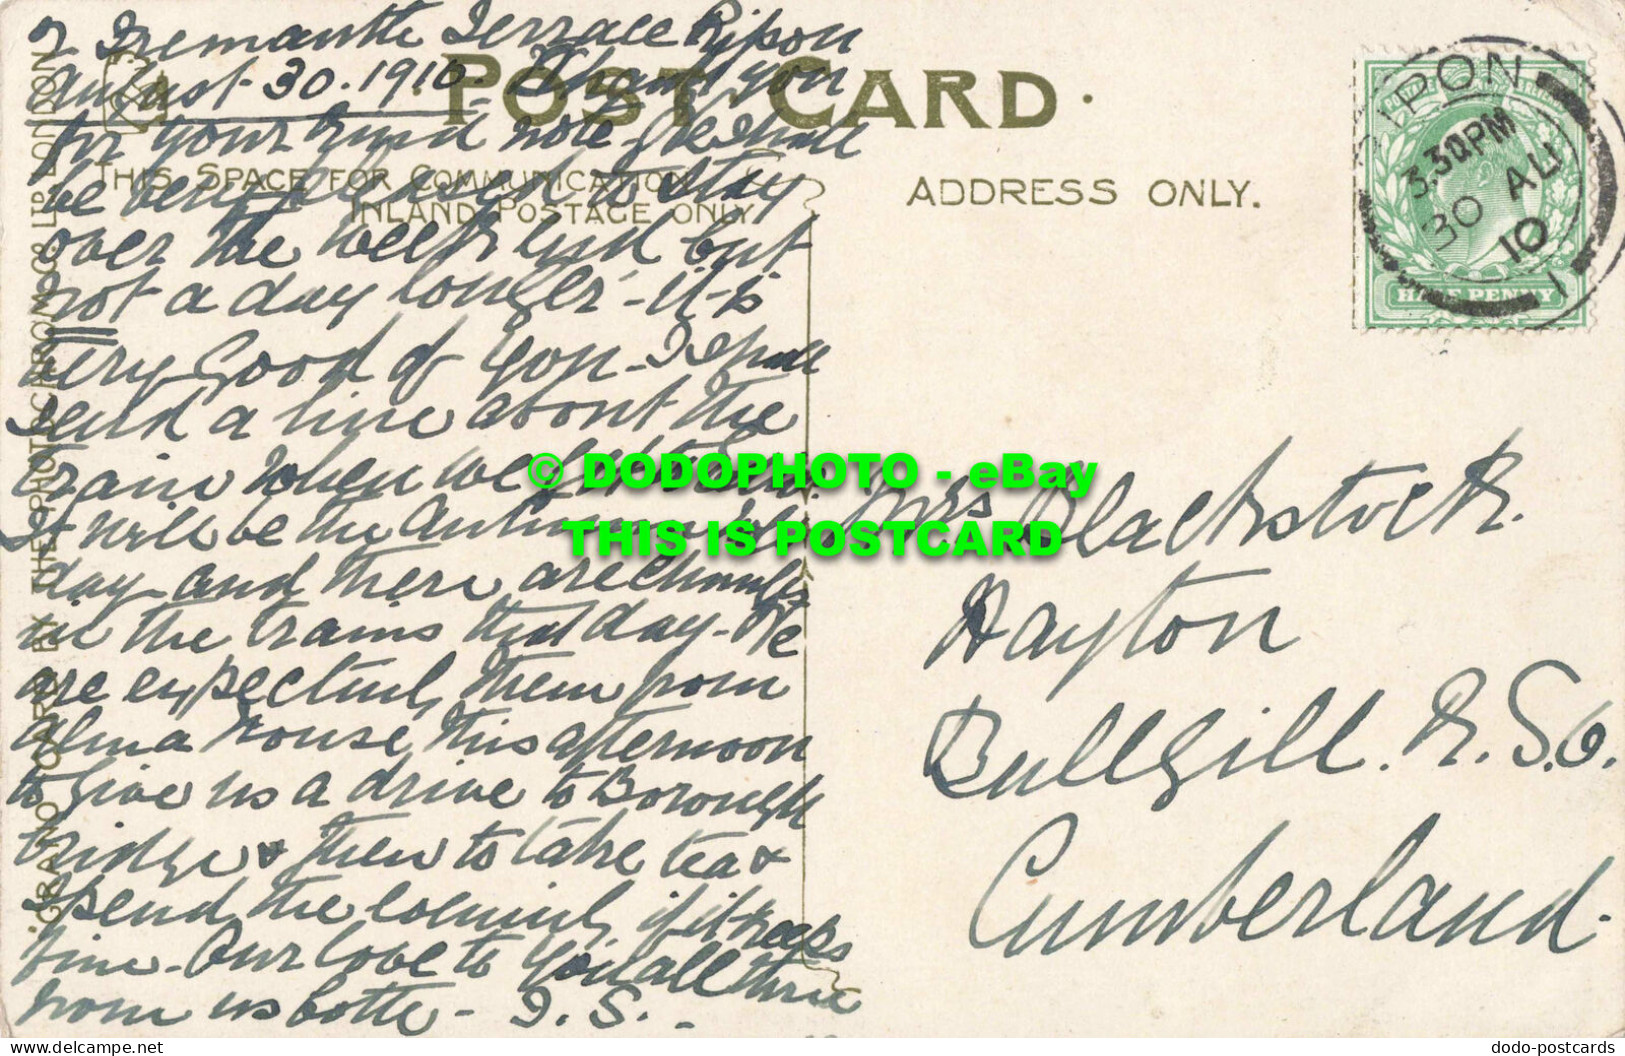 2 Fremantle Terrace Ripon
August 30. 1910. Thank you
for your kind note. We shall
be very pleased to stay
over the week end but
not a day longer - it is
very Good of you - I shall
send a line about the
train when we
It will be the
day - and there are changes
in the trains that day - We
are expecting them from
Alma House this afternoon
to give us a drive to Borough
bridge & then to take tea &
spend the evening if it keeps
fine - Our love to you all three
from us both - I. S. -
POST CARD.
THIS SPACE FOR COMMUNICATION
INLAND POSTAGE ONLY
ADDRESS ONLY.
"GRANO" CARD BY THE PHOTOCHROM CO LTD LONDON
RIPON
3.30PM
30 AU
10
1
HALF PENNY
© DODOPHOTO - eBay
THIS IS POSTCARD
Mrs Blackstock.
Hayton
Bullgill. R.S.O.
Cumberland.
dodo-postcards